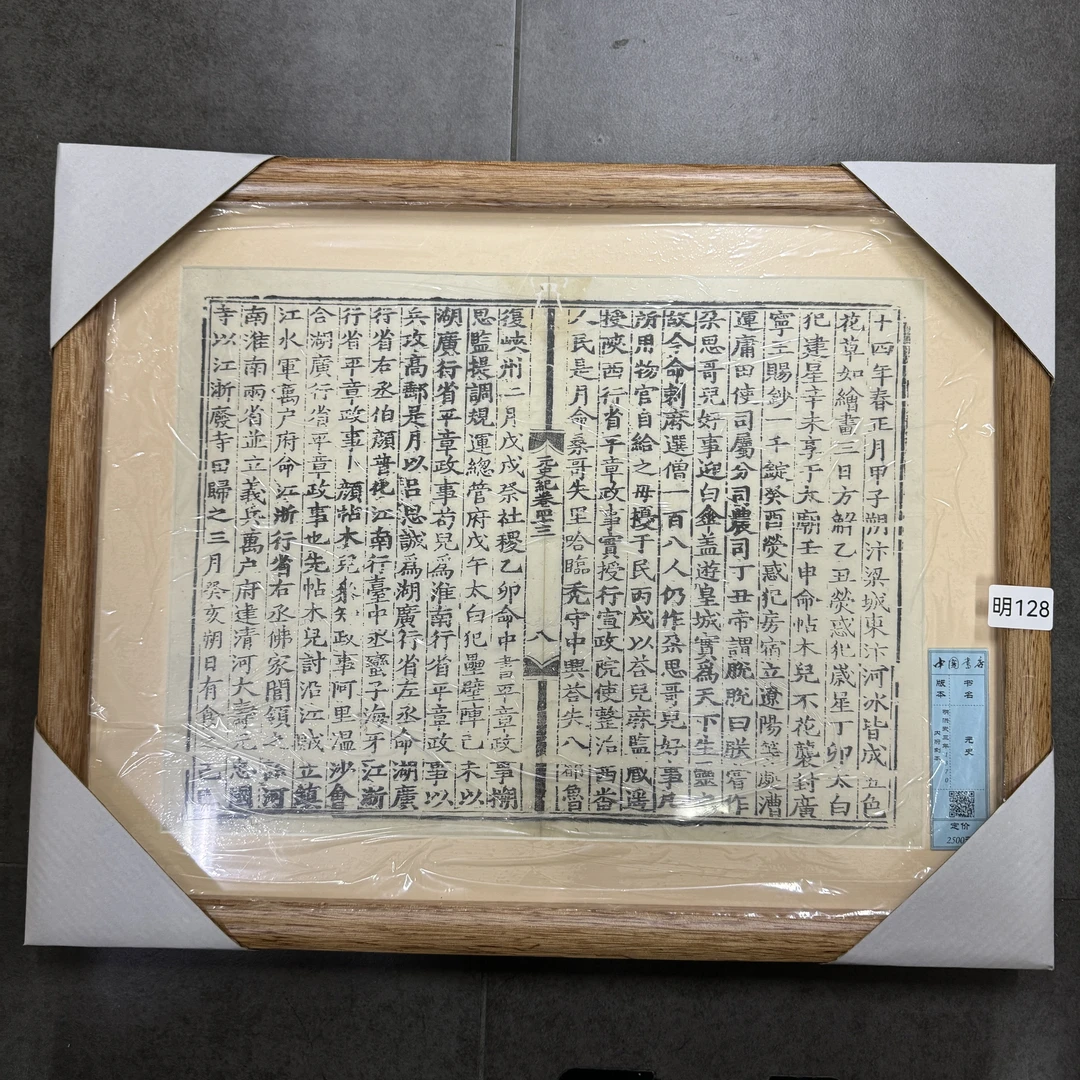 十四年春正月甲子朔汴梁城東汴河冰皆成五色
花草如繪畫三日方解乙丑熒惑犯歲星丁卯太白
犯建星辛未享于太廟壬申命帖木兒不花襲封廣
寧王賜鈔一千錠癸酉熒惑犯房宿立遼陽等處漕
運庸田使司屬分司農司丁丑帝謂脫脫曰朕嘗作
朶思哥兒好事迎白傘蓋遊皇城實爲天下生靈之
故今命剌麻選僧一百八人仍作朶思哥兒好事凡
所用物官自給之毋擾于民丙戌以荅兒麻監臧遥
授陜西行省平章政事實授行宣政院使整治西畨
人民是月命桑哥失里哈臨禿守中興荅失八都魯
元史紀卷四十三
八
復峽州二月戊戌祭社稷乙卯命中書平章政事搠
思監提調規運總管府戊午太白犯壘壁陣己未以
湖廣行省平章政事苟兒爲淮南行省平章政事以
兵攻高郵是月以呂思誠爲湖廣行省左丞命湖廣
行省右丞伯顔普化江南行臺中丞蠻子海牙江浙
行省平章政事卜顔帖木兒叅知政事阿里温沙會
合湖廣行省平章政事也先帖木兒討沿江賊立鎮
江水軍萬户府命江浙行省右丞佛家閭領之詔河
南淮南兩省並立義兵萬户府建清河大壽元忠國
寺以江浙廢寺田歸之三月癸亥朔日有食之己巳
明128
中國書店
书名 元史
版本
定价
2500